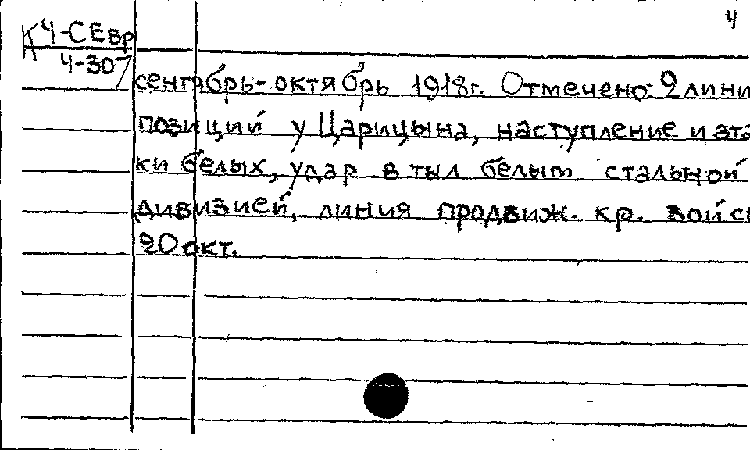 4
К 4-СЕвр
4-307
сентябрь-октябрь 1918г. Отмечено: 2 лини
позиций у Царицына, наступление и ата
ки белых, удар в тыл белым стальной
дивизией, линия продвиж. кр. войск
20 окт.